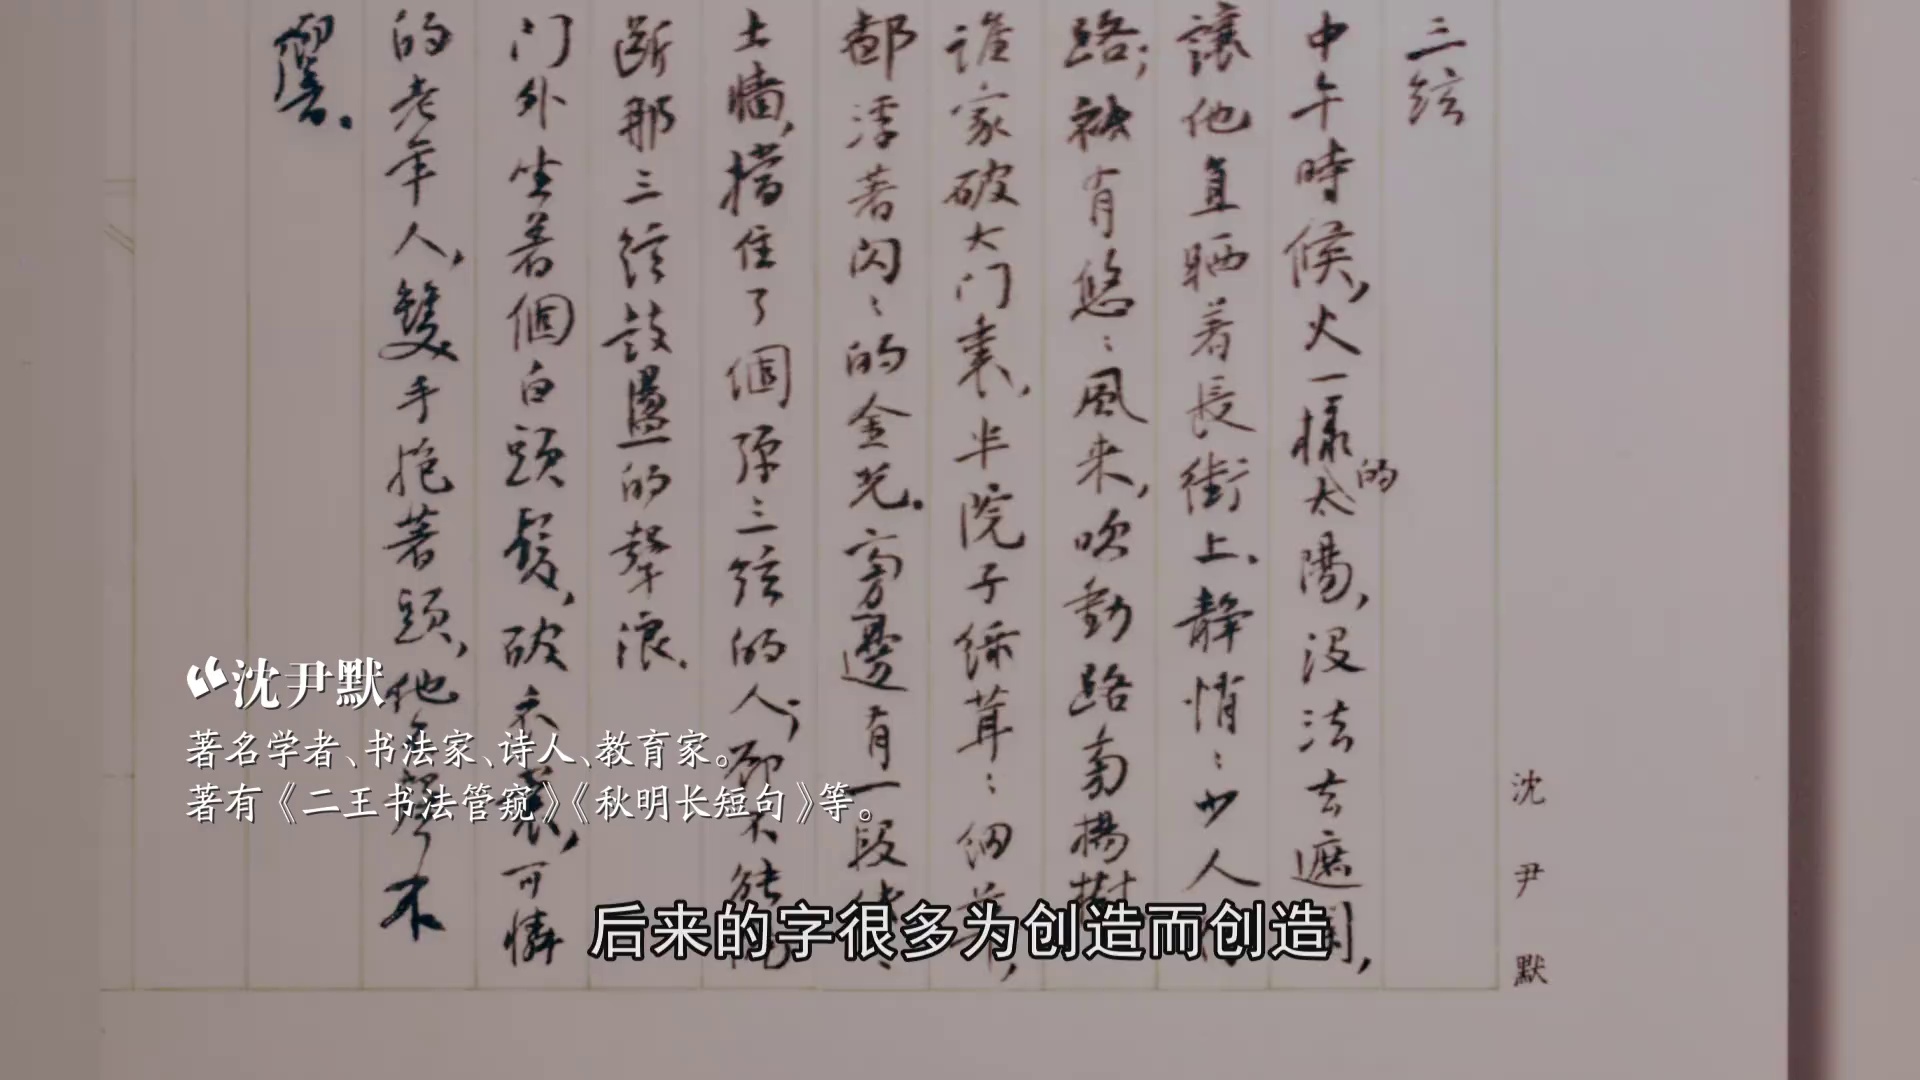 三絃
中午時候，火一樣的太陽，沒法去遮闌，
讓他直晒著長街上。静悄：少人行
路；祇有悠：風来，吹動路旁楊樹。
誰家破大门裏，半院子綠茸：细草，
都浮著闪：的金光。旁邊有一段低：
土牆，擋住了個弹三絃的人；却不能隔
斷那三絃鼓盪的聲浪。
门外坐著個白頭髮，破衣裳，可憐
的老年人，雙手抱著頭，他不聲不
響。
沈尹默
“沈尹默
著名学者、书法家、诗人、教育家。
著有《二王书法管窥》《秋明长短句》等。
后来的字很多为创造而创造